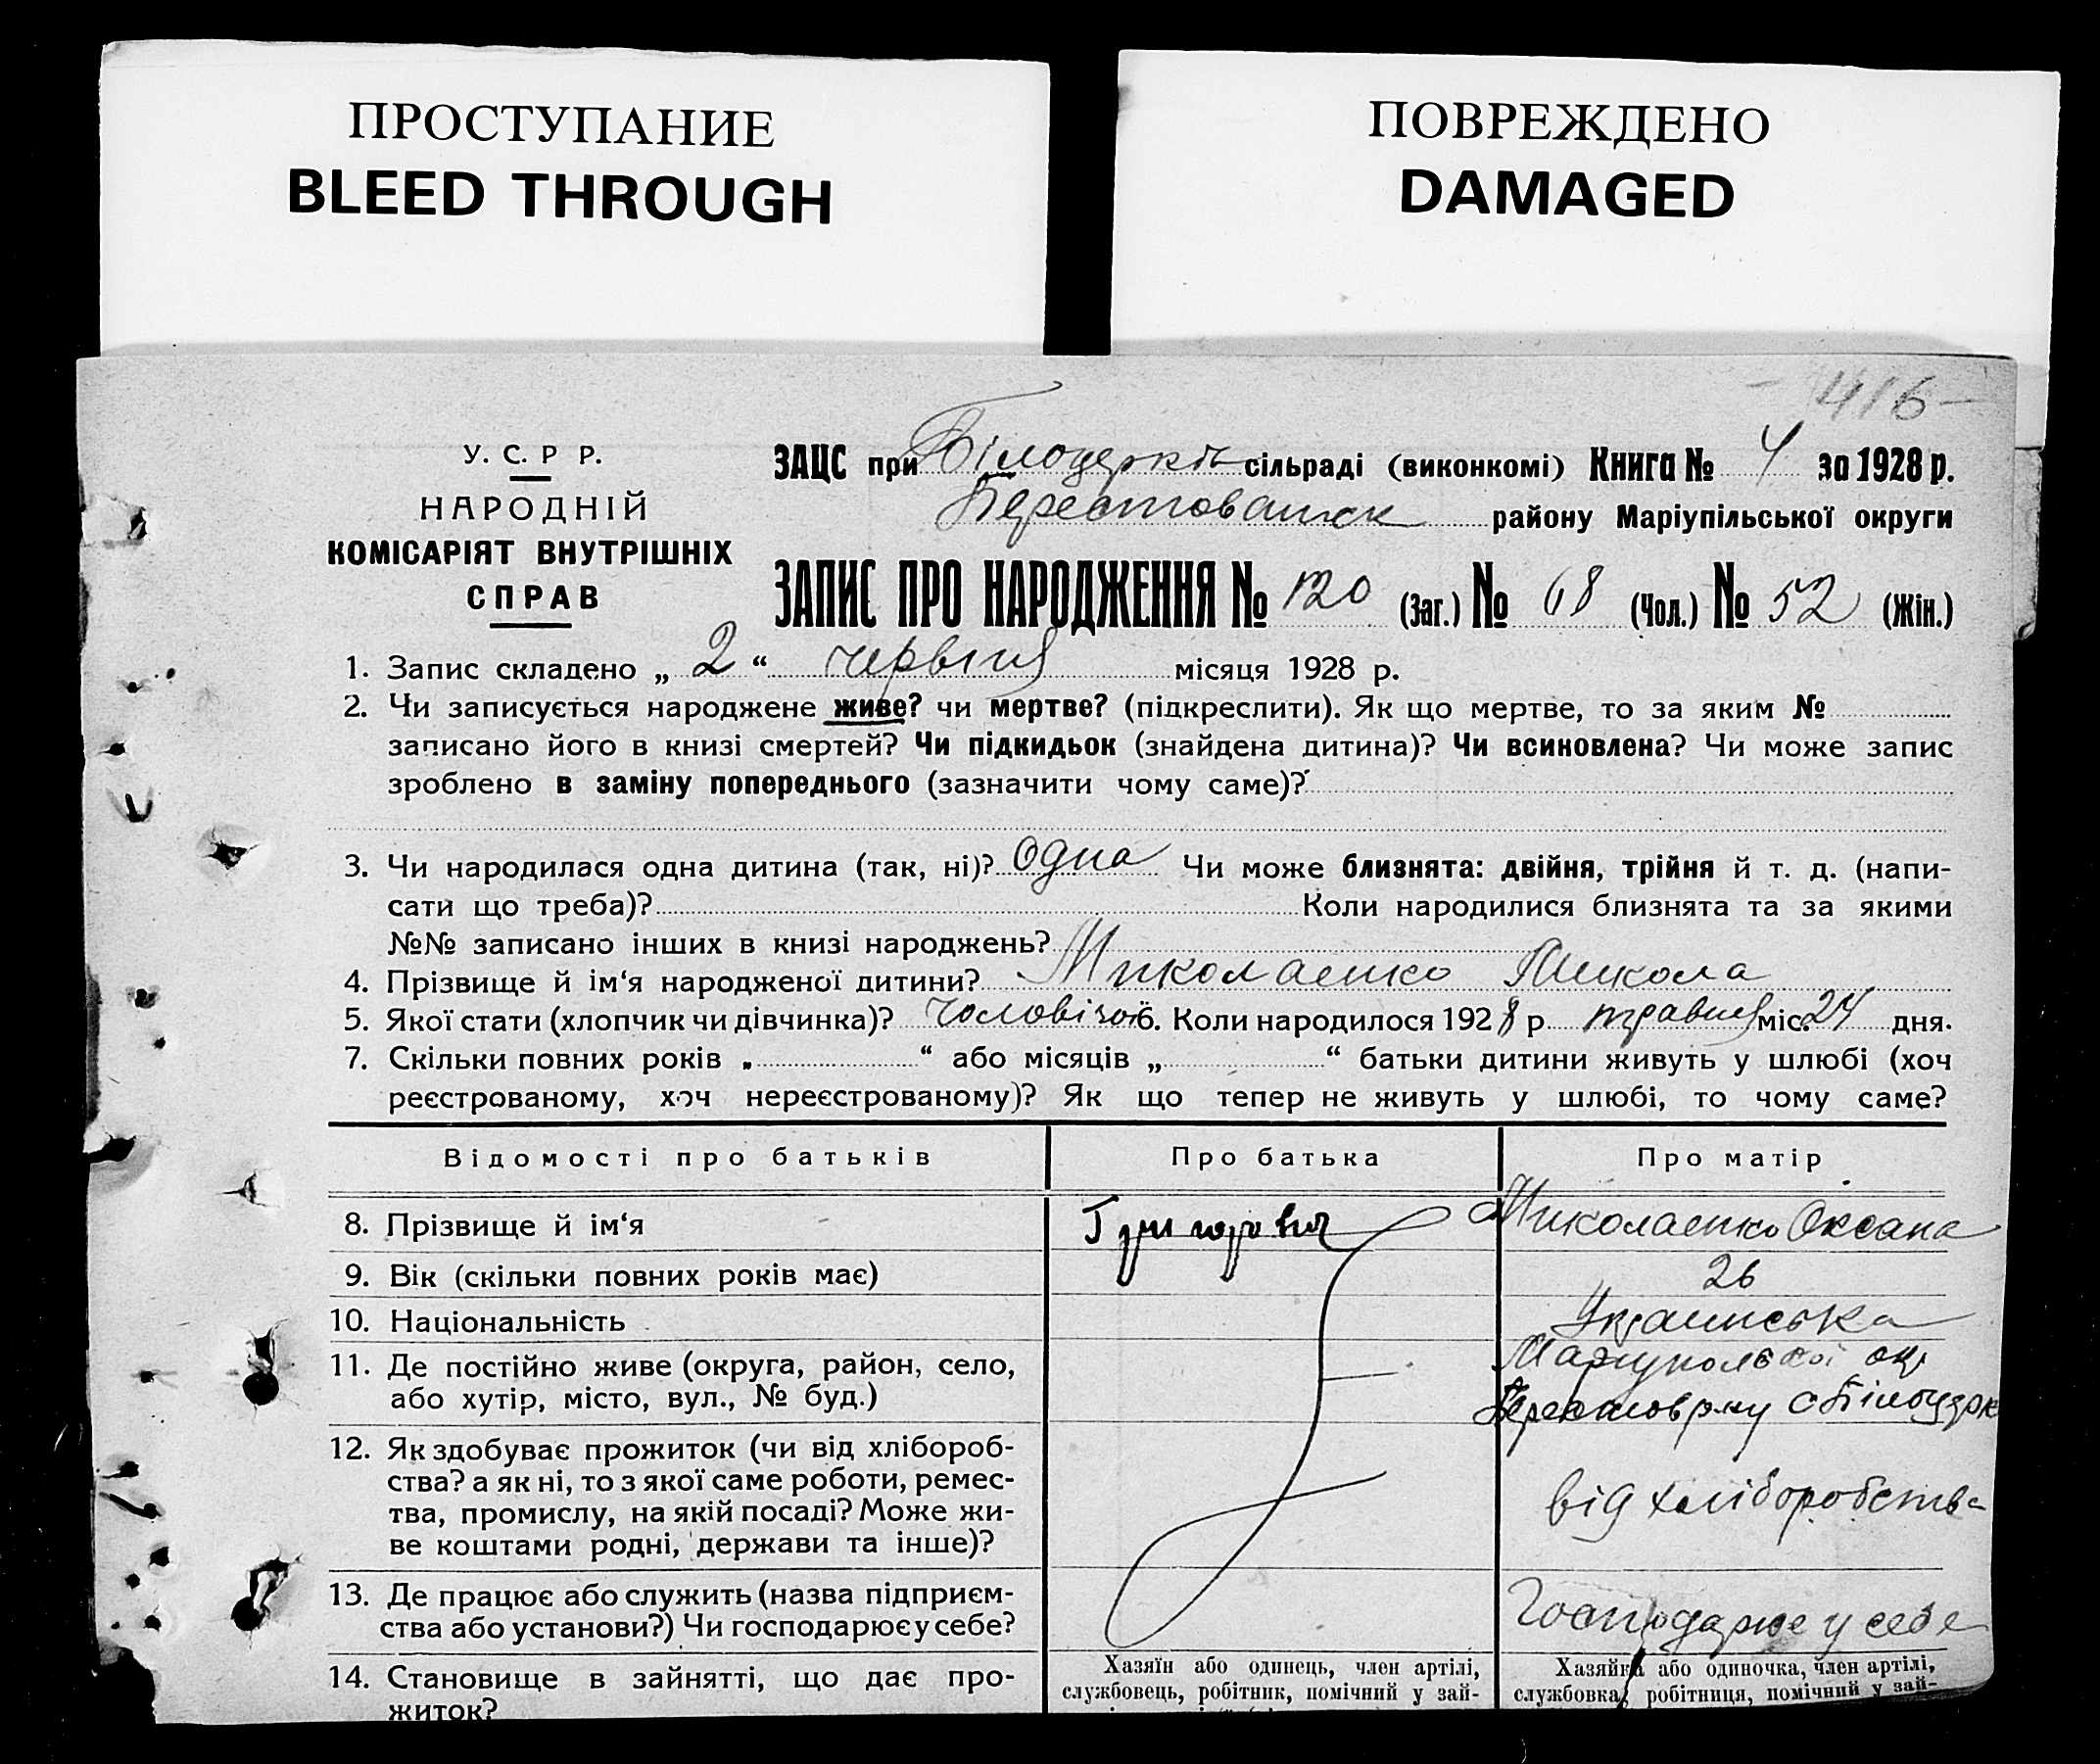 ПРОСТУПАНИЕ
BLEED THROUGH
ПОВРЕЖДЕНО
DAMAGED
416
У. С. Р Р.
НАРОДНІЙ
КОМІСАРІЯТ ВНУТРІШНІХ
СПРАВ
ЗАЦС при Білоцерків сільраді (виконкомі) Книга № 4 за 1928 р.
Берестованск району Маріупільської округи
ЗАПИС ПРО НАРОДЖЕННЯ № 120 (Заг.) № 68 (Чол.) № 52 (Жін.)
1. Запис складено „ 2 “ червня місяця 1928 р.
2. Чи записується народжене живе? чи мертве? (підкреслити). Як що мертве, то за яким №
записано його в книзі смертей? Чи підкидьок (знайдена дитина)? Чи всиновлена? Чи може запис
зроблено в заміну попереднього (зазначити чому саме)?
3. Чи народилася одна дитина (так, ні)? Одна Чи може близнята: двійня, трійня й т. д. (напи-
сати що треба)? Коли народилися близнята та за якими
№№ записано інших в книзі народжень?
4. Прізвище й ім‘я народженої дитини? Миколаенко Микола
5. Якої стати (хлопчик чи дівчинка)? чоловічої 6. Коли народилося 1928 р. травня міс. 24 дня.
7. Скільки повних років „ “ або місяців „ “ батьки дитини живуть у шлюбі (хоч
реєстрованому, хоч нереєстрованому)? Як що тепер не живуть у шлюбі, то чому саме?
Відомості про батьків Про батька Про матір
8. Прізвище й ім‘я Григорович Миколаенко Оксана
9. Вік (скільки повних років має) 26
10. Національність Украинська
11. Де постійно живе (округа, район, село, Мариупольской окр
або хутір, місто, вул., № буд.) Берестов р-ну с Білоцерк
12. Як здобуває прожиток (чи від хлібороб-
ства? а як ні, то з якої саме роботи, ремес-
тва, промислу, на якій посаді? Може жи- від хліборобства
ве коштами родні, держави та інше)?
13. Де працює або служить (назва підприєм-
ства або установи?) Чи господарює у себе? Господарює у себе
14. Становище в зайнятті, що дає про-
житок?
Хазяїн або одинець, член артілі,
службовець, робітник, помічний у зай-
Хазяйка або одиночка, член артілі,
службовка, робітниця, помічний у зай-